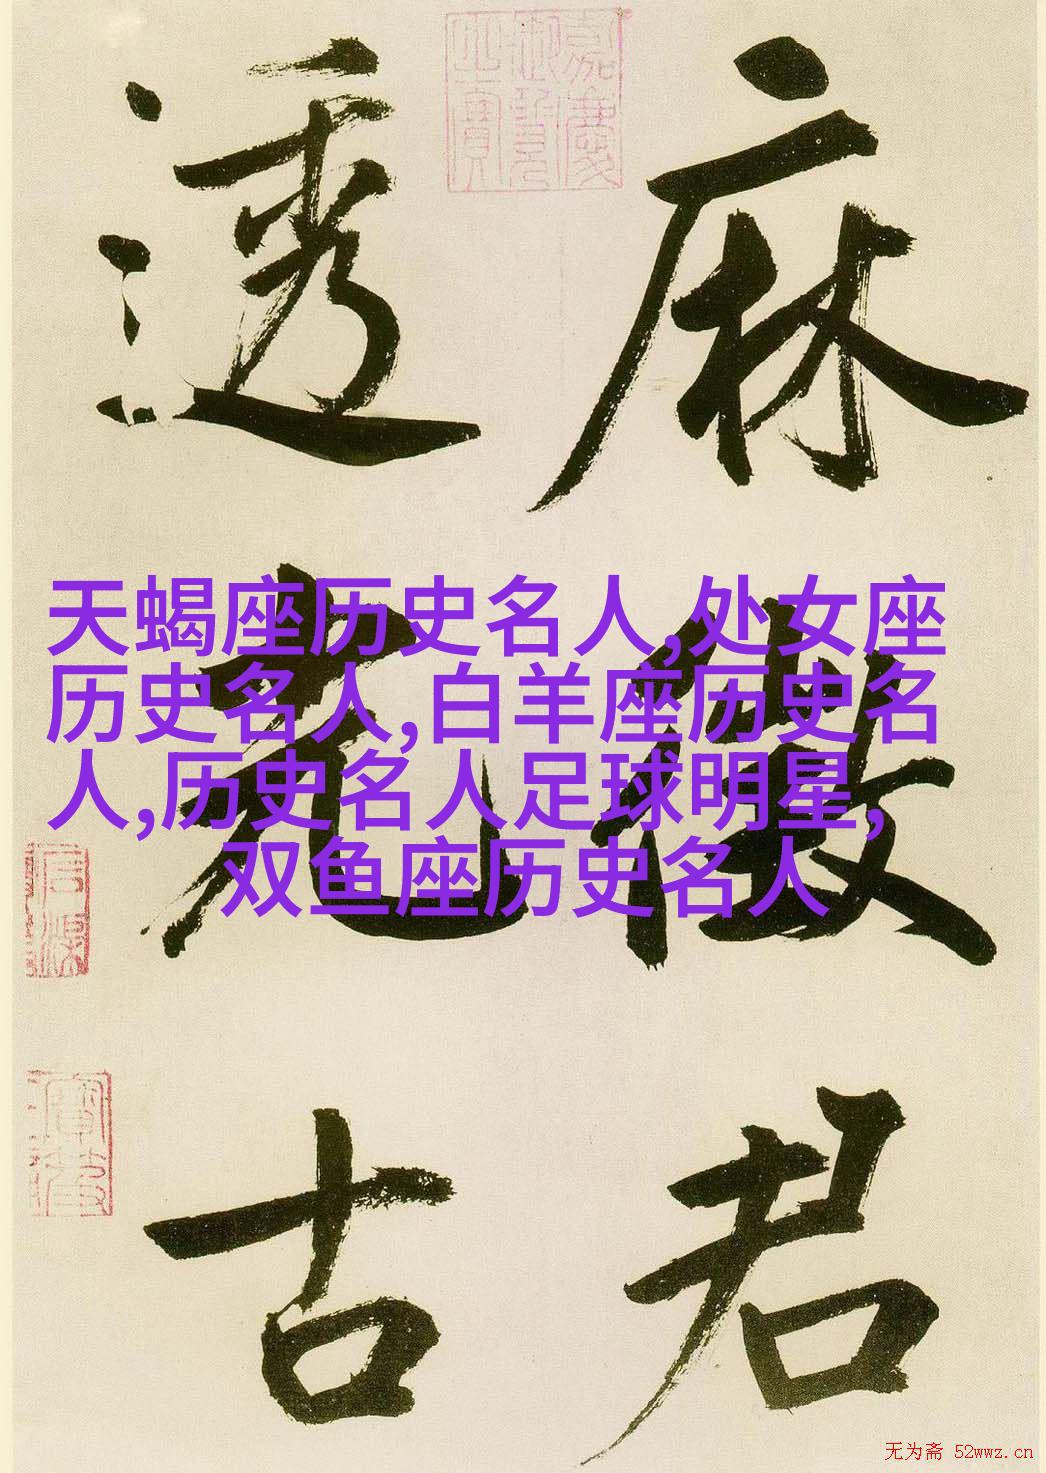 麻徵君
透光古
嘉慶御覽之寶
天蝎座历史名人,处女座
历史名人,白羊座历史名
人,历史名人足球明星,
双鱼座历史名人
无为斋 52wwz.cn